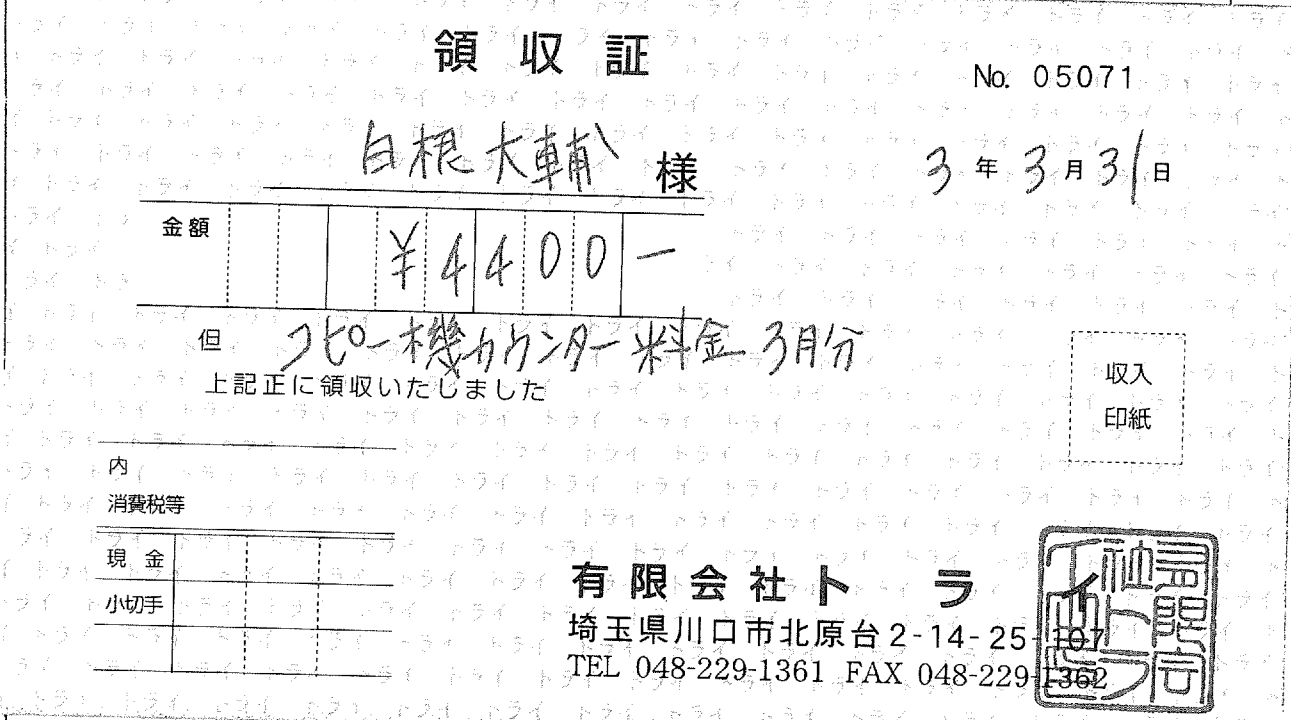 領収証
No. 05071
白根大輔 様
3年3月31日
金額 ¥4400-
但 コピー機カウンター料金 3月分
上記正に領収いたしました
収入
印紙
内
消費税等
現金
小切手
有限会社トライ
埼玉県川口市北原台2-14-25-107
TEL 048-229-1361 FAX 048-229-1362